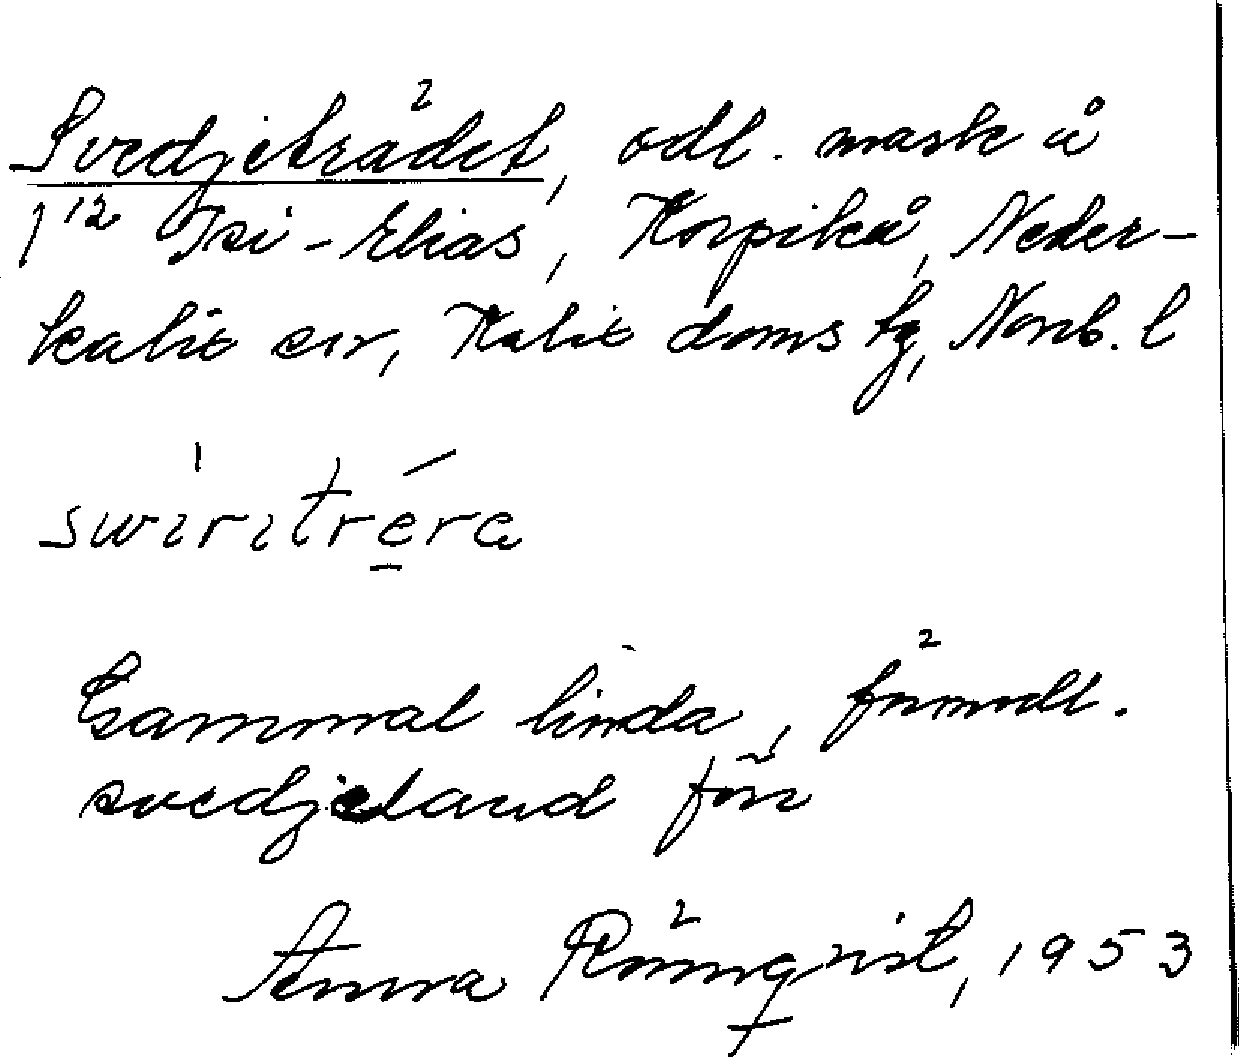 Svedjeträdet, odl. mark å
1¹² Isi-Elias, Korpikå, Neder-
kalix sn, Kalix doms tg, Norrb. l
swiriträra
Gammal linda, förmodl.
svedjeland förr
Anna Rönnqvist, 1953